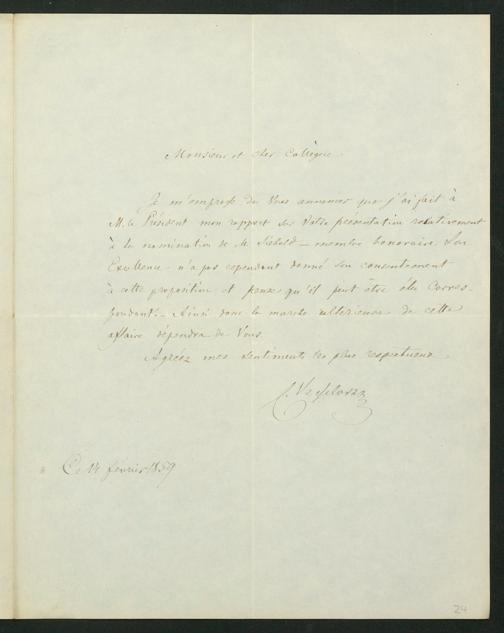 Monsieur et cher Collègue.
Je m'empresse de Vous annoncer que j'ai fait à
M. le Président mon rapport sur Votre présentation relativement
à la nomination de M. Siebold – membre honoraire. Son
Excellence n'a pas cependant donné son consentement
à cette proposition et pense qu'il peut être élu Corres-
pondant. – Ainsi donc la marche ultérieure de cette
affaire dépendra de Vous.
Agréez mes sentiments les plus respectueux.
C. Vessélovski
Ce 14 février 1859
24